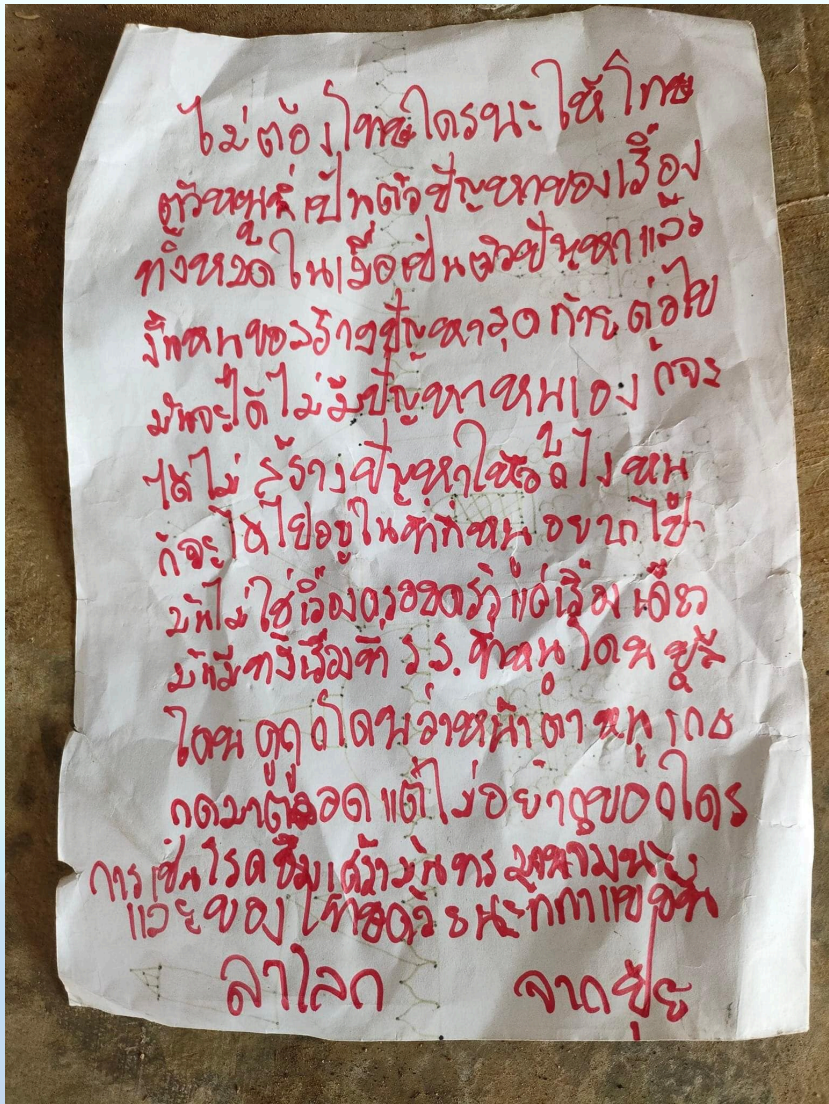 ไม่ต้องโทษใครนะ ให้โทษ
ตัวหนูที่เป็นตัวปัญหาของเรื่อง
ทั้งหมดในเมื่อเป็นตัวปัญหาแล้ว
งั้นหนูขอสร้างปัญหาสุดท้าย ต่อไป
มันจะได้ไม่มีปัญหา หนูเอง ก็จะ
ได้ไม่สร้างปัญหาให้ หนู
ก็จะได้ไปอยู่ในที่ที่หนูอยากไป
มันไม่ใช่เรื่องครอบครัวแต่เรื่องเดียว
มันมีทั้งเรื่องที่ ร.ร. ที่หนูโดน
โดนดูถูกโดนว่าหน้าตา หนู เก็บ
กดมาตลอด แต่ไม่อยาก ใคร
การเป็นโรคซึมเศร้ามันทรมาน
และขอ ด้วยนะที่
ลาโลก จากปุ้ย